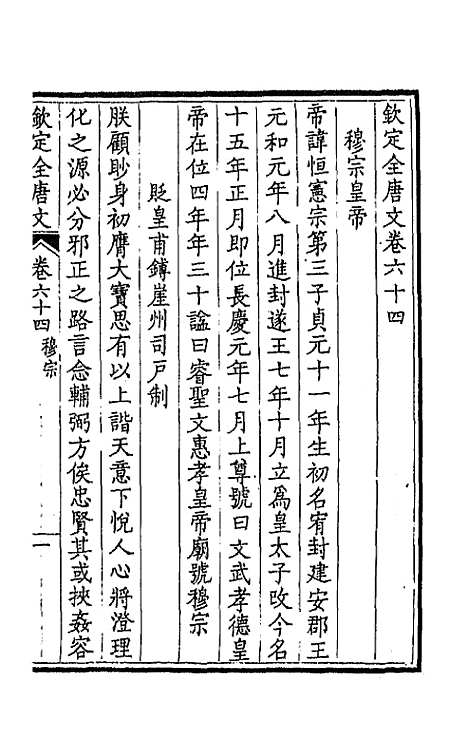 欽定全唐文卷六十四
穆宗皇帝
帝諱恒憲宗第三子貞元十一年生初名宥封建安郡王
元和元年八月進封遂王七年十月立爲皇太子改今名
十五年正月即位長慶元年七月上尊號曰文武孝德皇
帝在位四年年三十諡曰睿聖文惠孝皇帝廟號穆宗
貶皇甫鎛崖州司戸制
朕顧眇身初膺大寶思有以上諧天意下悅人心將澄理
化之源必分邪正之路言念輔弼方俟忠賢其或挾姦容
欽定全唐文 卷六十四 穆宗 一